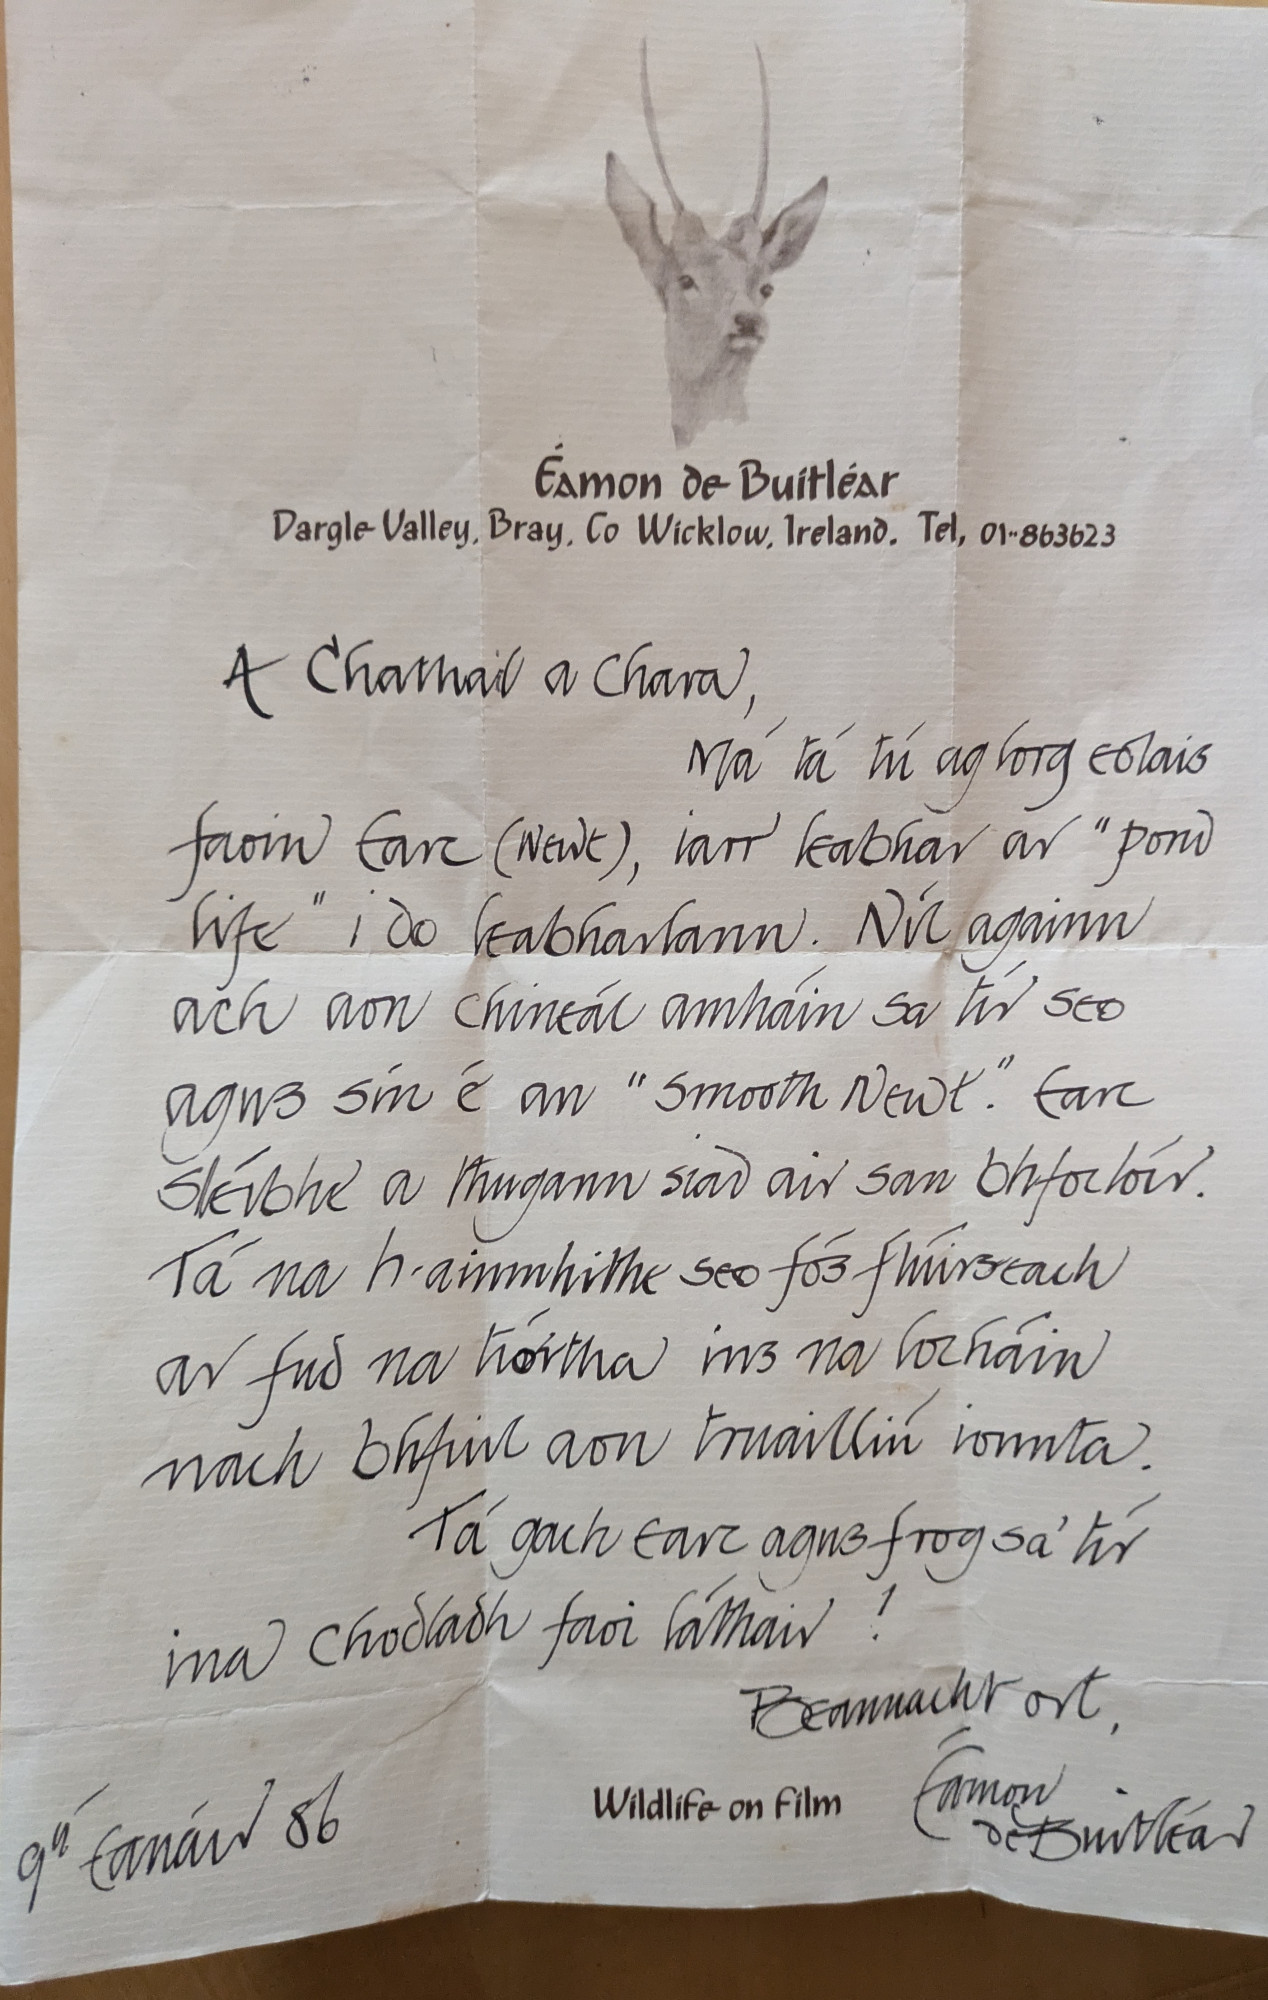 Éamon de Buitléar
Dargle Valley, Bray, Co Wicklow, Ireland. Tel, 01-863623
A Chathail a Chara,
Má tá tú ag lorg eolais
faoin Earc (Newt), iarr leabhar ar "pond
life" i do leabharlann. Níl againn
ach aon chineál amháin sa tír seo
agus sin é an "Smooth Newt". Earc
Sléibhe a thugann siad air san bhfoclóir.
Tá na h-ainmhithe seo fós flúirseach
ar fud na tíortha ins na locháin
nach bhfuil aon truailliú ionnta.
Tá gach earc agus frog sa' tír
ina chodladh faoi láthair!
Beannacht ort,
Éamon
de Buitléar
Wildlife on Film
9ú Eanáir 86